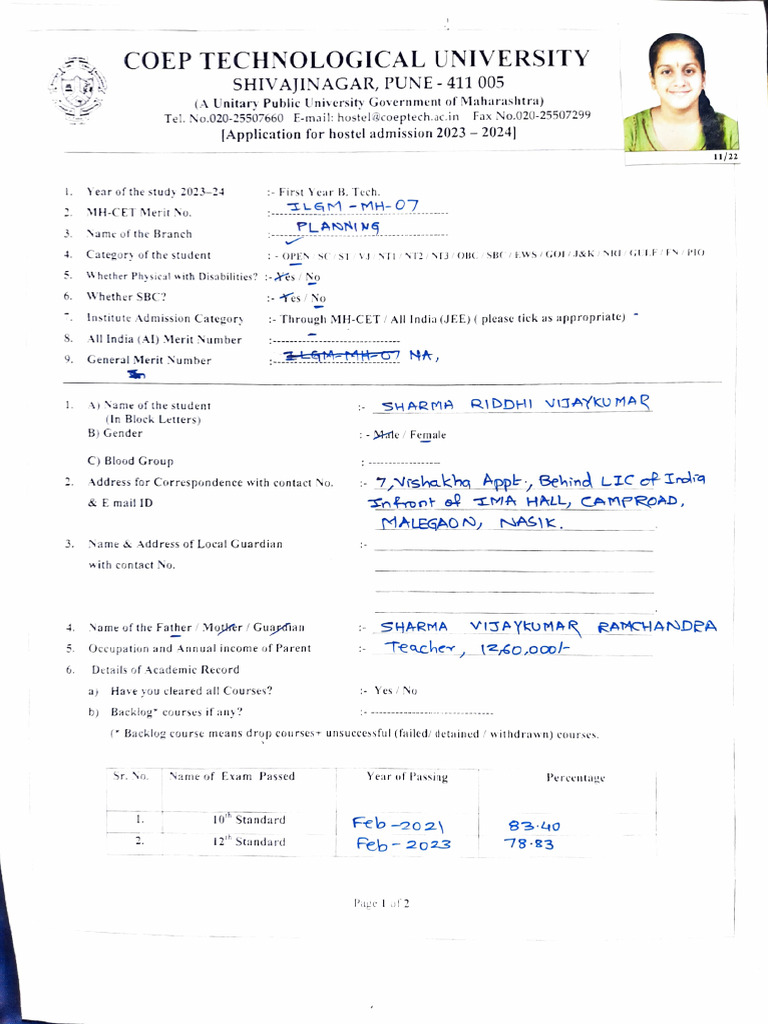 COEP TECHNOLOGICAL UNIVERSITY
SHIVAJINAGAR, PUNE - 411 005
(A Unitary Public University Government of Maharashtra)
Tel. No.020-25507660 E-mail: hostel@coeptech.ac.in Fax No.020-25507299
[Application for hostel admission 2023 – 2024]
11/22
1. Year of the study 2023–24 :- First Year B. Tech.
2. MH-CET Merit No. :- ILGM-MH-07
3. Name of the Branch :- PLANNING
4. Category of the student : - OPEN / SC / ST / VJ / NT1 / NT2 / NT3 / OBC / SBC / EWS / GOI / J&K / NRI / GULF / FN / PIO
5. Whether Physical with Disabilities? :- Yes / No
6. Whether SBC? :- Yes / No
7. Institute Admission Category :- Through MH-CET / All India (JEE) ( please tick as appropriate)
8. All India (AI) Merit Number :-
9. General Merit Number :- ILGM-MH-07 NA,
1. A) Name of the student :- SHARMA RIDDHI VIJAYKUMAR
(In Block Letters)
B) Gender : - Male / Female
C) Blood Group :
2. Address for Correspondence with contact No. :- 7, Vishakha Appt., Behind LIC of India
& E mail ID Infront of IMA HALL, CAMPROAD,
MALEGAON, NASIK.
3. Name & Address of Local Guardian :-
with contact No.
4. Name of the Father / Mother / Guardian :- SHARMA VIJAYKUMAR RAMCHANDRA
5. Occupation and Annual income of Parent :- Teacher, 12,60,000/-
6. Details of Academic Record
a) Have you cleared all Courses? :- Yes / No
b) Backlog* courses if any? :-
(* Backlog course means drop courses+ unsuccessful (failed/ detained / withdrawn) courses.
Sr. No. Name of Exam Passed Year of Passing Percentage
1. 10th Standard Feb-2021 83.40
2. 12th Standard Feb-2023 78.83
Page 1 of 2